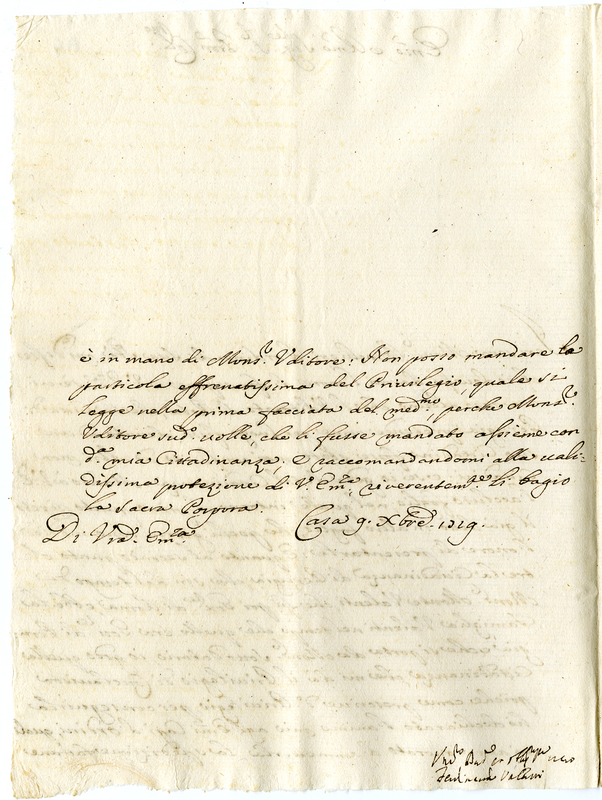 è in mano di Mons.re Vditore; Non posso mandare la
particola effrenatissima del Privilegio, quale si
legge nella prima facciata del med.mo, perche Mons.re
Vditore sud.o uolle, che li fusse mandato assieme con
d.a mia Cittadinanza; e raccomandandomi alla uali-
dissima protezione di V. Em.za, riuerentem.te li bagio
la Sacra Porpora.
Di Vra. Em.za Casa 9. Xbre. 1719.
Ferdinando